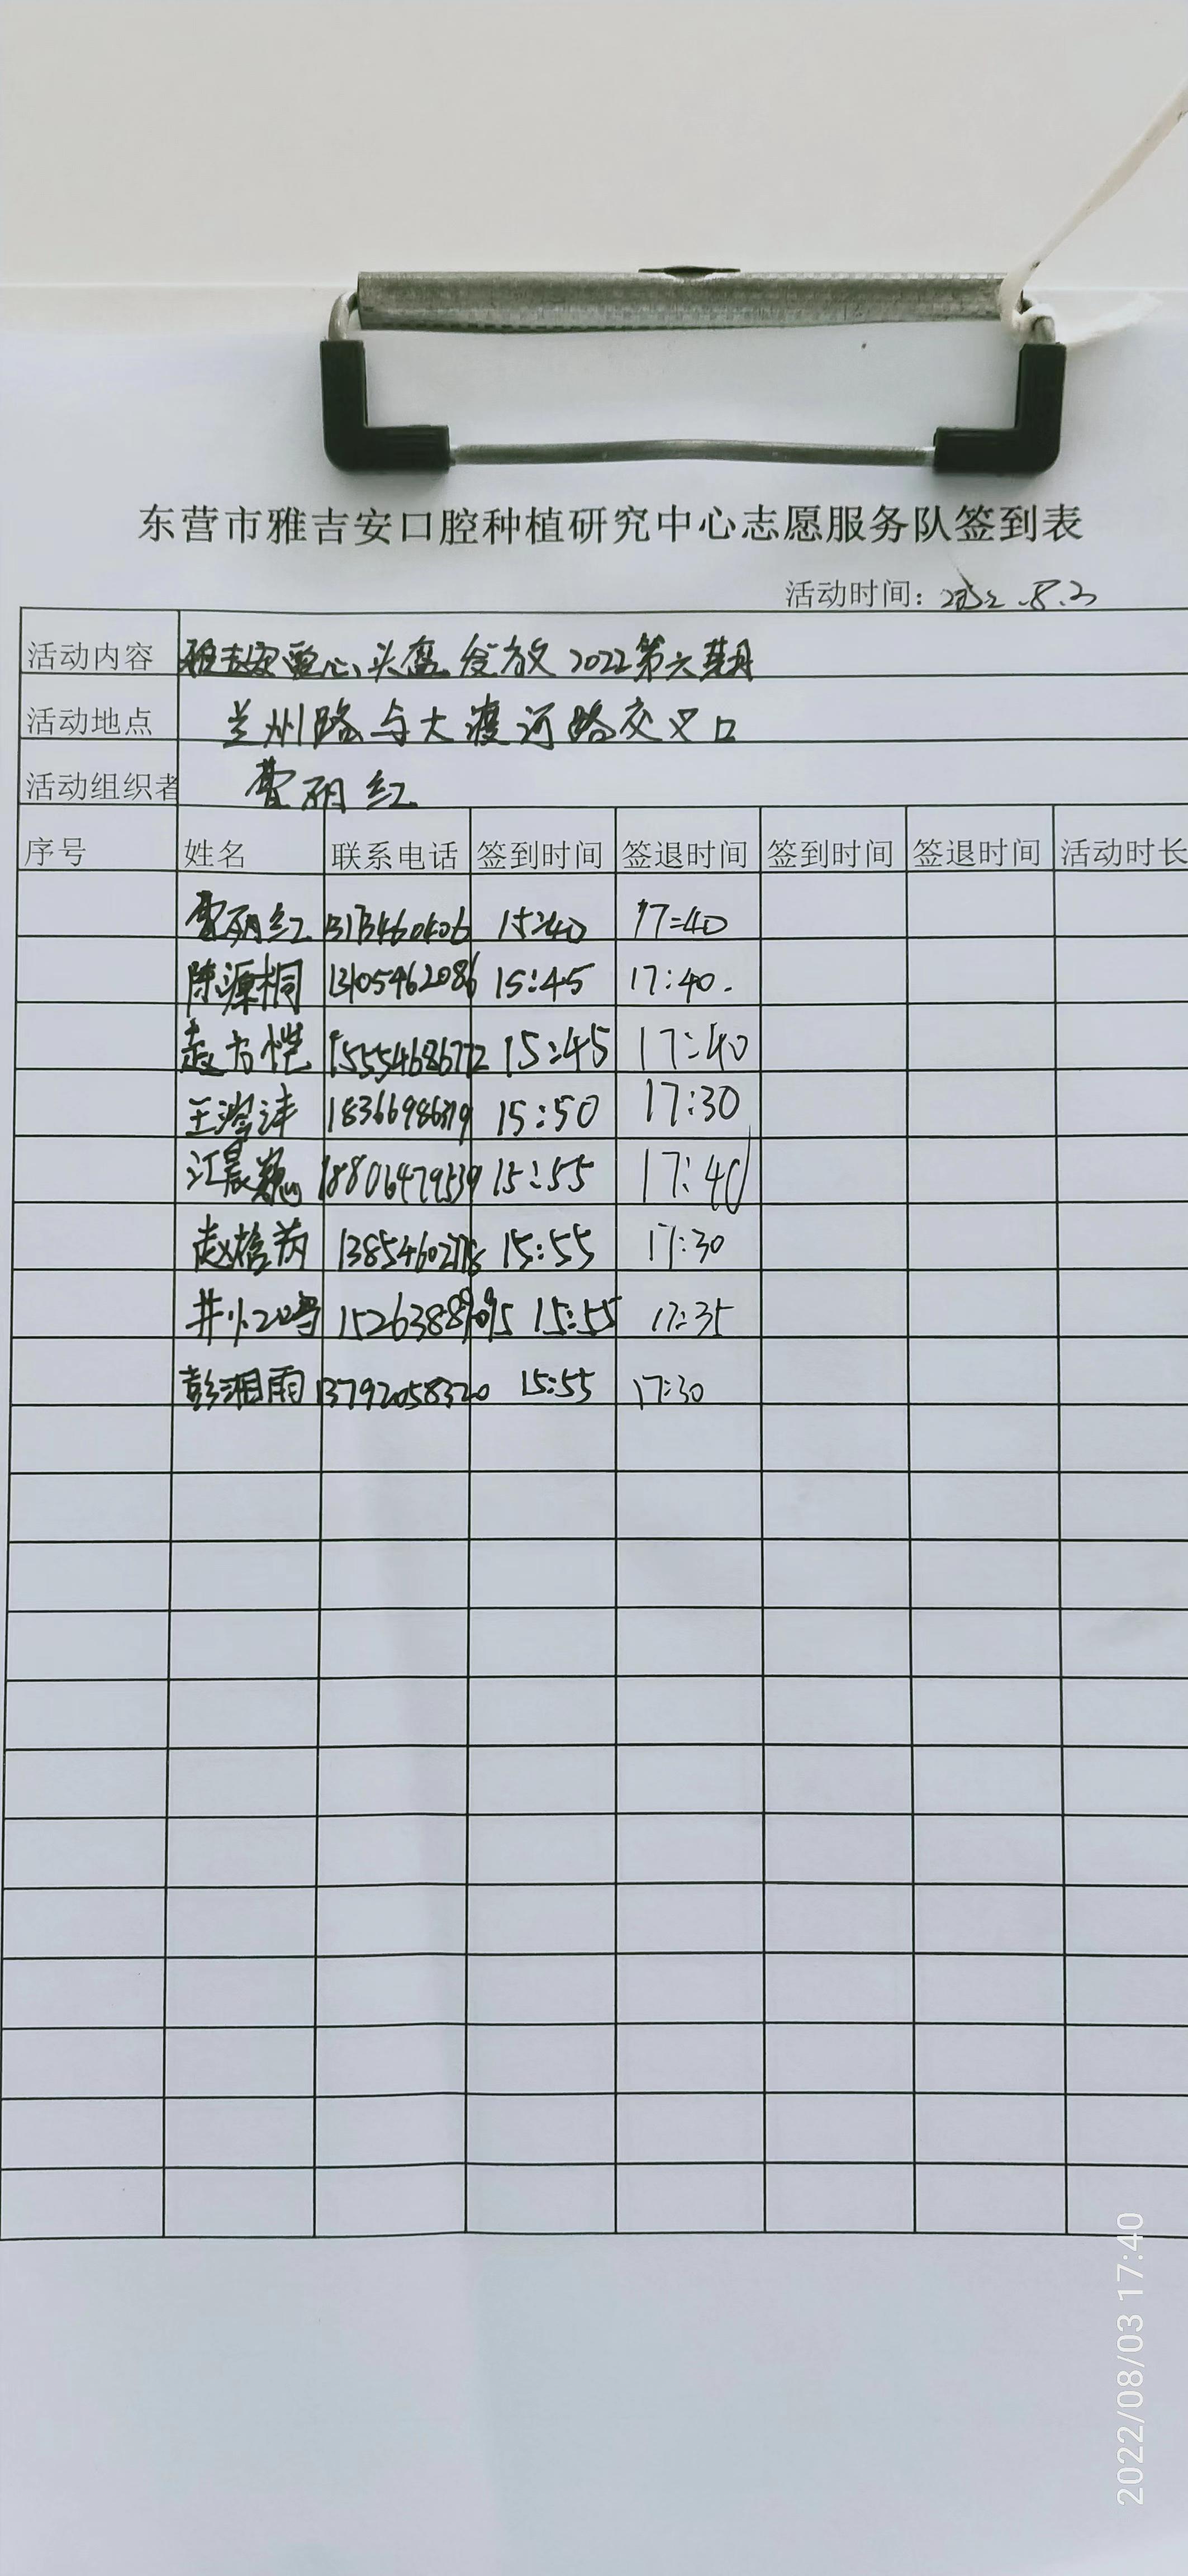 东营市雅吉安口腔种植研究中心志愿服务队签到表
活动时间：2022.8.3
活动内容 雅吉安爱心头盔发放2022第六期
活动地点 兰州路与大渡河路交叉口
活动组织者 丽红
序号 姓名 联系电话 签到时间 签退时间 签到时间 签退时间 活动时长
丽红 15:40 17:40
陈源桐 13105462086 15:45 17:40.
赵方恺 15554686772 15:45 17:40
王 15:50 17:30
江晨巍 18806479539 15:55 17:40
赵 15:55 17:30
井 15:55 17:35
彭湘雨 13792058320 15:55 17:30
2022/08/03 17:40